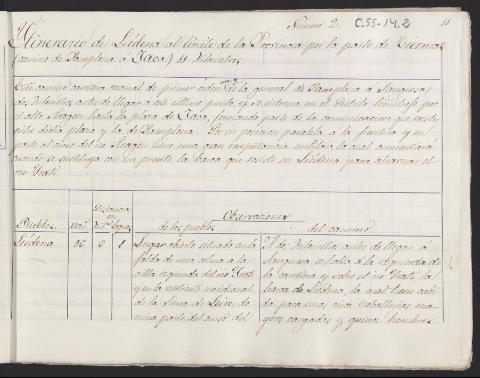 Número 2. C.55-14.2
Itinerario de Liédena al límite de la Provincia por la parte de Tiermas
(camino de Pamplona á Jaca) 18 Kilómetros
Este camino carretera vecinal de primer orden de la general de Pamplona á Sangüesa,
dos Kilómetros antes de llegar á este último punto, y se interna en el Distrito limítrofe por
el alto Aragon hasta la plaza de Jaca, formando parte de la comunicacion que existe
entre dicha plaza y la de Pamplona. Por su posicion paralela á la frontera y en
parte al curso del rio Aragon tiene una gran importancia militar, la cual aumentará
cuando se sustituya con un puente la barca que existe en Liédena para atravesar el
rio Irati
Distancias
en
Observaciones
Pueblos. Kil.s leguas de los pueblos del camino
Liédena 96 6 1 Lugar abierto situado en la A dos Kilómetros antes de llegar á
falda de una colina á la Sangüesa se halla á la izquierda de
orilla izquierda del rio Irati la carretera y sobre el rio Irati, la
y en la vertiente meridional barca de Liédena, la cual tiene cabi-
de la Sierra de Leire, do- da para una, cinco caballerias ma-
mina parte del curso del yores cargadas y quince hombres